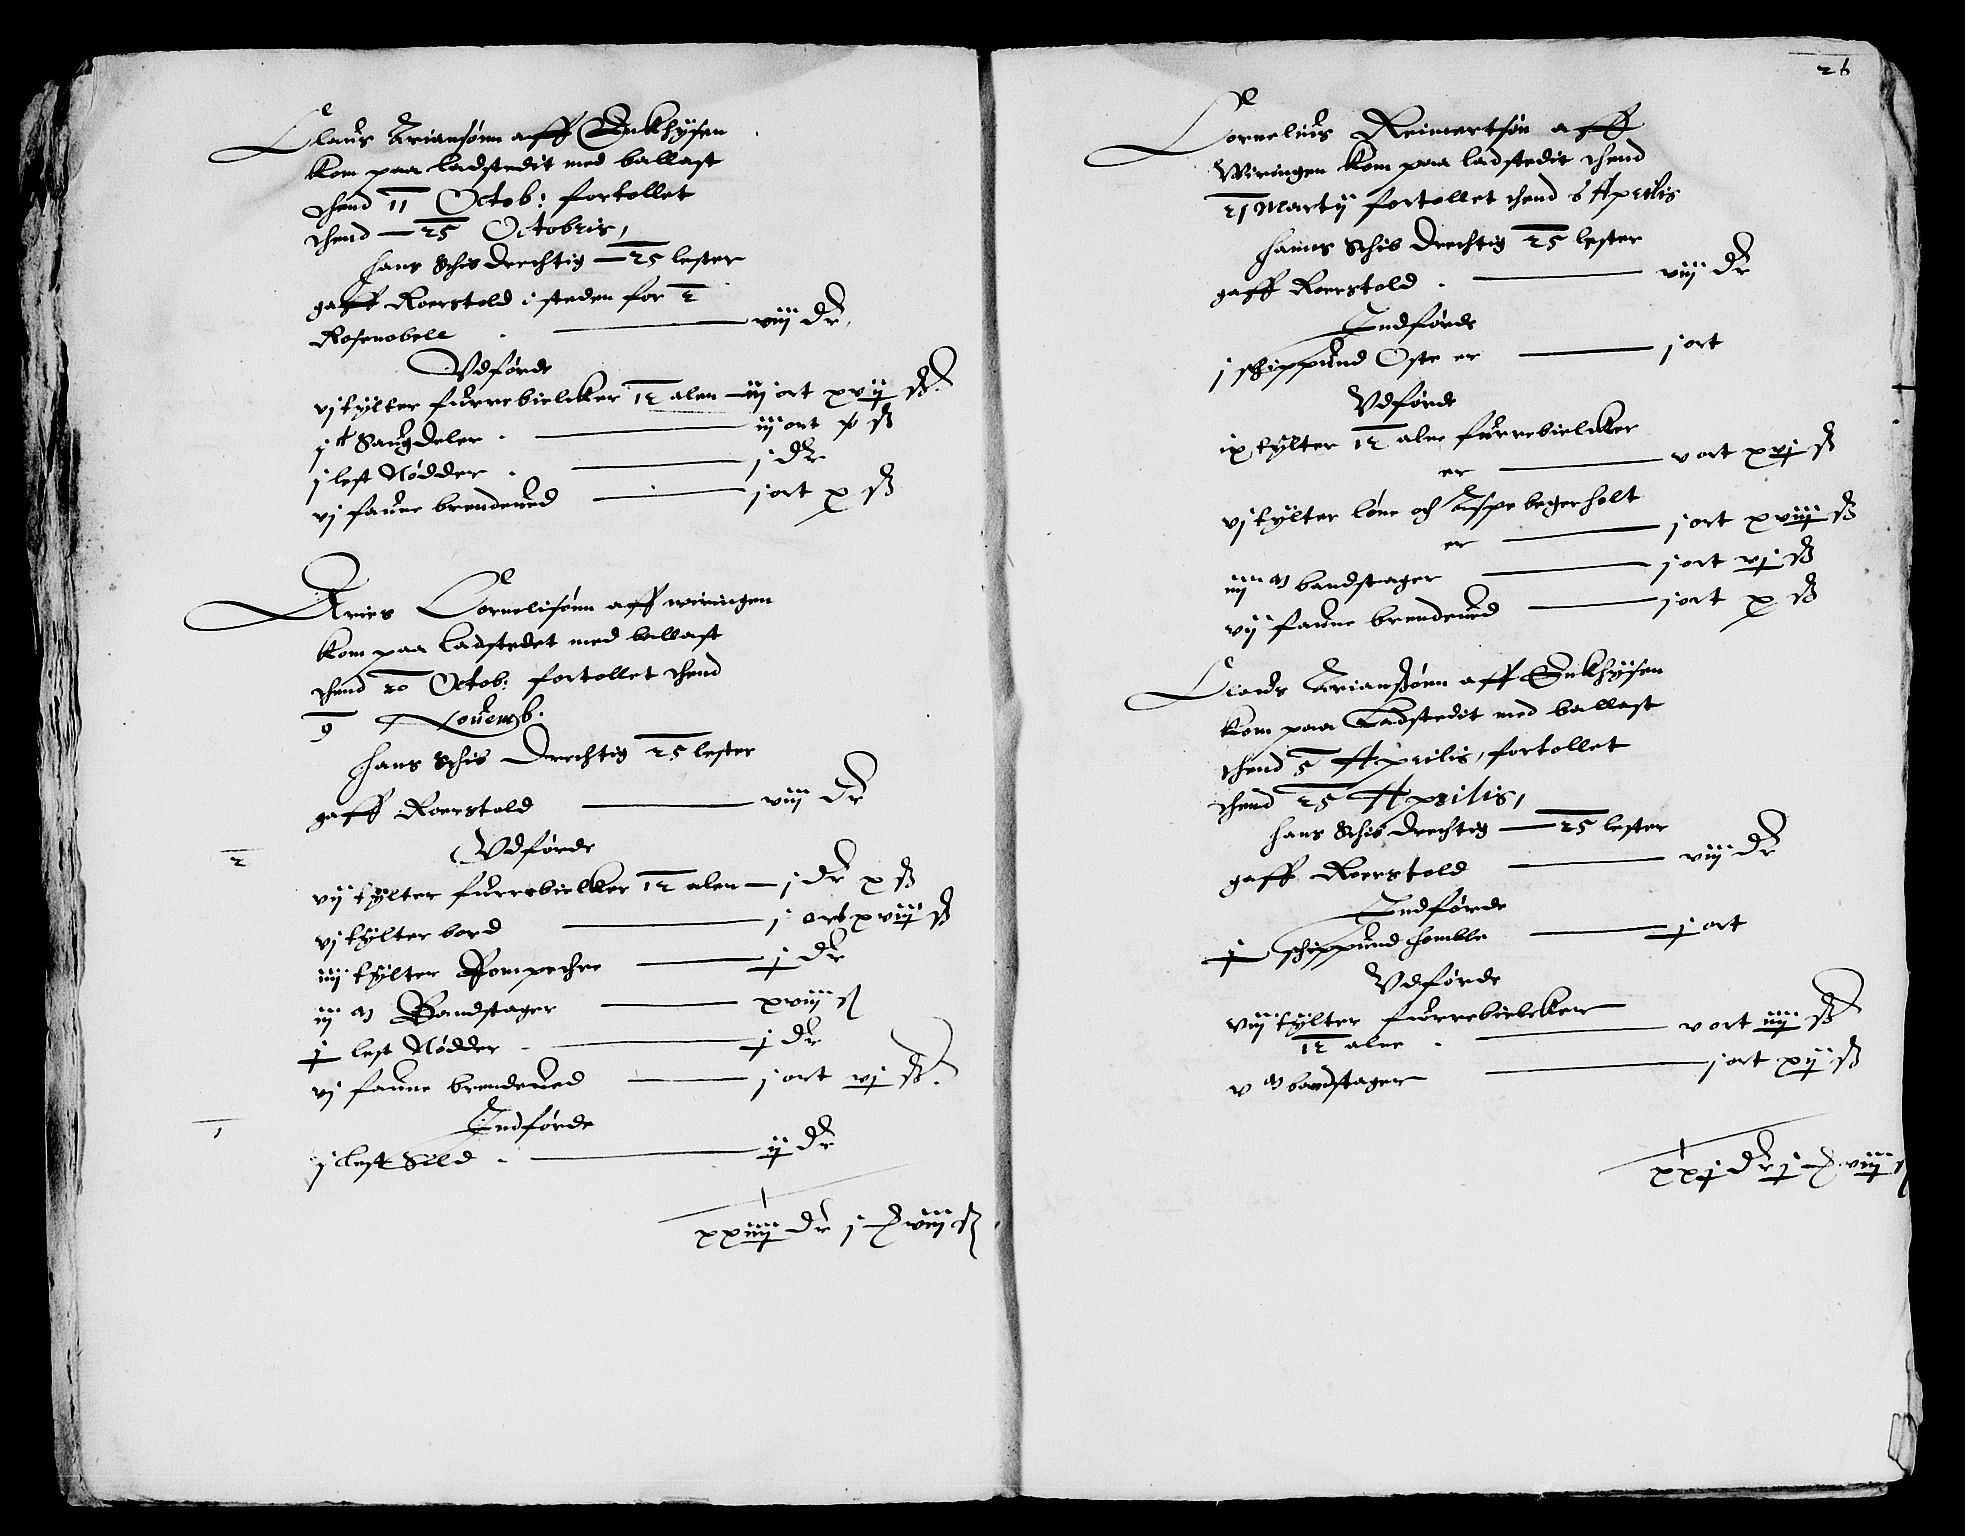 Claus Ariansønn aff Enkhÿsen
kom paa ladstedit med ballast
thend 11 Octob: fortollet
thend — 25 Octobris,
hans Schib drechtig — 25 lester
gaff Roerstold i steden for 2
Rosenobell — viij dr
Vdførde
vj tÿlter furrebielcker 12 alen — iij ort xvij ß
j Saugdeler — iij ort ß
j lest Nødder — j dr
vj faune brendeued — j ort x ß
Aries Cornelisønn aff wiringen
kom paa ladstedet med ballast
thend 20 Octob: fortollet thend
9 Nouemb.
hans Schib drechtig 25 lester
gaff Roerstold — viij dr
2
Vdførde
vij tÿlter furrebielker 12 alen — j dr x ß
vj tÿlter bord — j ort xviij ß
iiij tÿlter — j dr
iij m Bandstager — xviij ß
j lest Nødder — j dr
vj faune brendeued — j ort vj ß
1
Indførde
j lest Sild — ij dr
xxiiij dr j viij ß
26
Cornelius Reimertsøn aff
Wiringen kom paa ladstedit thend
21 Martij fortollet thend 8 Aprilis
hanns Schib drechtig 25 lester
gaff Roerstold — viij dr
Indførde
j schippund Oste er — j ort
Vdførde
ix tÿlter 12 alne furrebielcker
er — v ort xvj ß
vj tÿlter løne och Aspe begerholt
er — j ort xviij ß
iiij m bandstager — j ort vj ß
vij faune brendeued — j ort x ß
Claus Arianßønn aff Enkhÿsen
kom paa Ladstedit med ballast
thend 5 Aprilis, fortollet
thend 25 Aprilis,
hans Schib drechtig — 25 lester
gaff Roerstold — viij dr
Indførde
j schippund homble — j ort
Vdførde
viij tÿlter furrebielcker
12 alne — v ort iiij ß
v m bandstager — j ort xij ß
xxj dr j viij ß